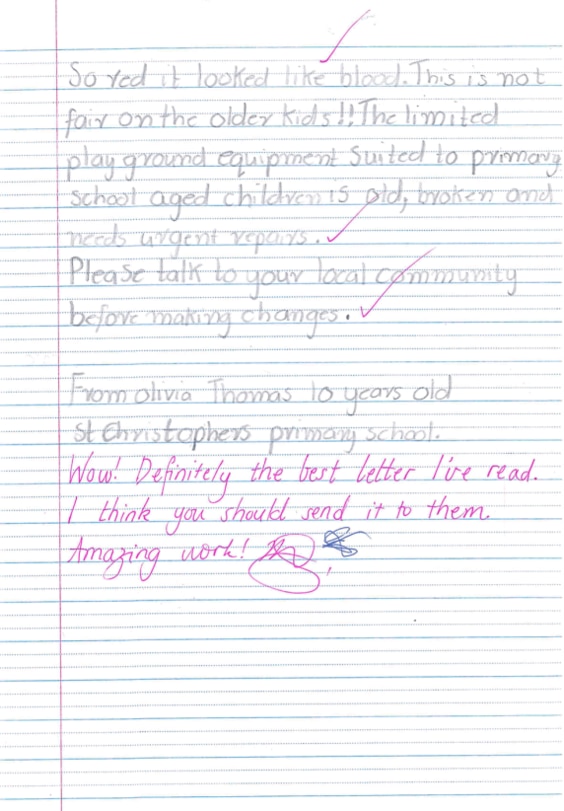 So red it looked like blood. This is not
fair on the older kids!! The limited
play ground equipment suited to primary
school aged children is old, broken and
needs urgent repairs.
Please talk to your local community
before making changes.
From Olivia Thomas 10 years old
St Christophers primary school.
Wow! Definitely the best letter I've read.
I think you should send it to them.
Amazing work!